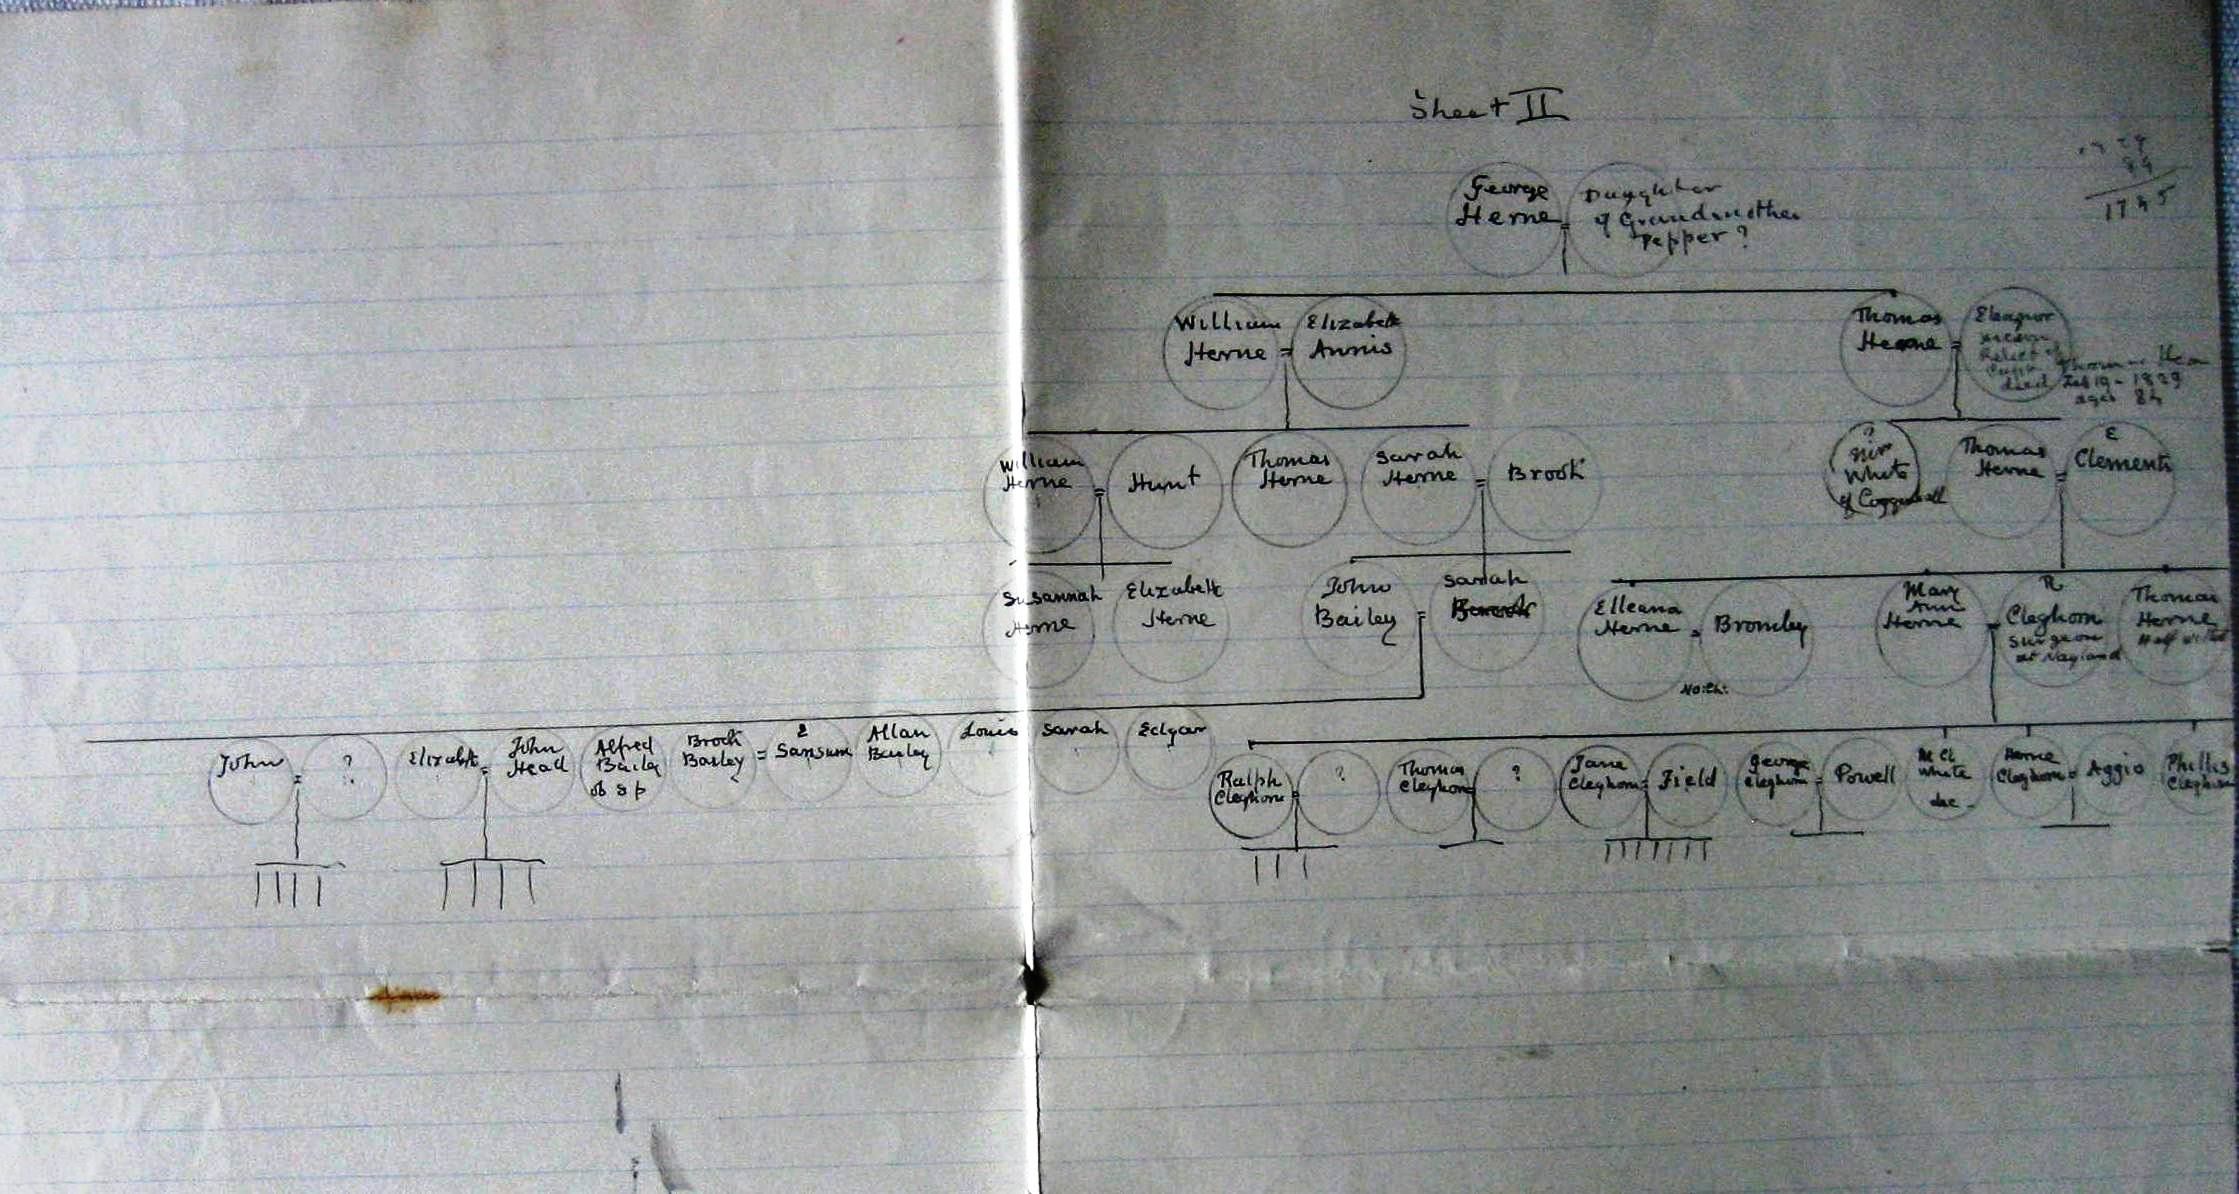 Sheet II
84
1745
George
Herne
=
Daughter
of Grandmother
Pepper ?
William
Herne
=
Elizabeth
Annis
Thomas
Herne
=
Eleanor
Relict of
died
Feb 19 - 1829
aged 84
William
Herne
=
Hunt
Thomas
Herne
Sarah
Herne
=
Brook
?
White
of Coggeshall
Thomas
Herne
=
E
Clements
Susannah
Herne
Elizabeth
Herne
John
Bailey
=
Sarah
Elleana
Herne
=
Bromley
No Ch:
Mary
Ann
Herne
=
R
Cleghorn
Surgeon
at Nayland
Thomas
Herne
Half witted
John
=
?
Elizabeth
=
John
Head
Alfred
Baily
ob s p
Brock
Bailey
=
E
Sansum
Allan
Bailey
Louis
Sarah
Edgar
Ralph
Cleghorn
=
?
Thomas
Cleghorn
=
?
Jane
Cleghorn
=
Field
George
Cleghorn
=
Powell
White
Herne
Cleghorn
=
Aggio
Phillis
Cleghorn